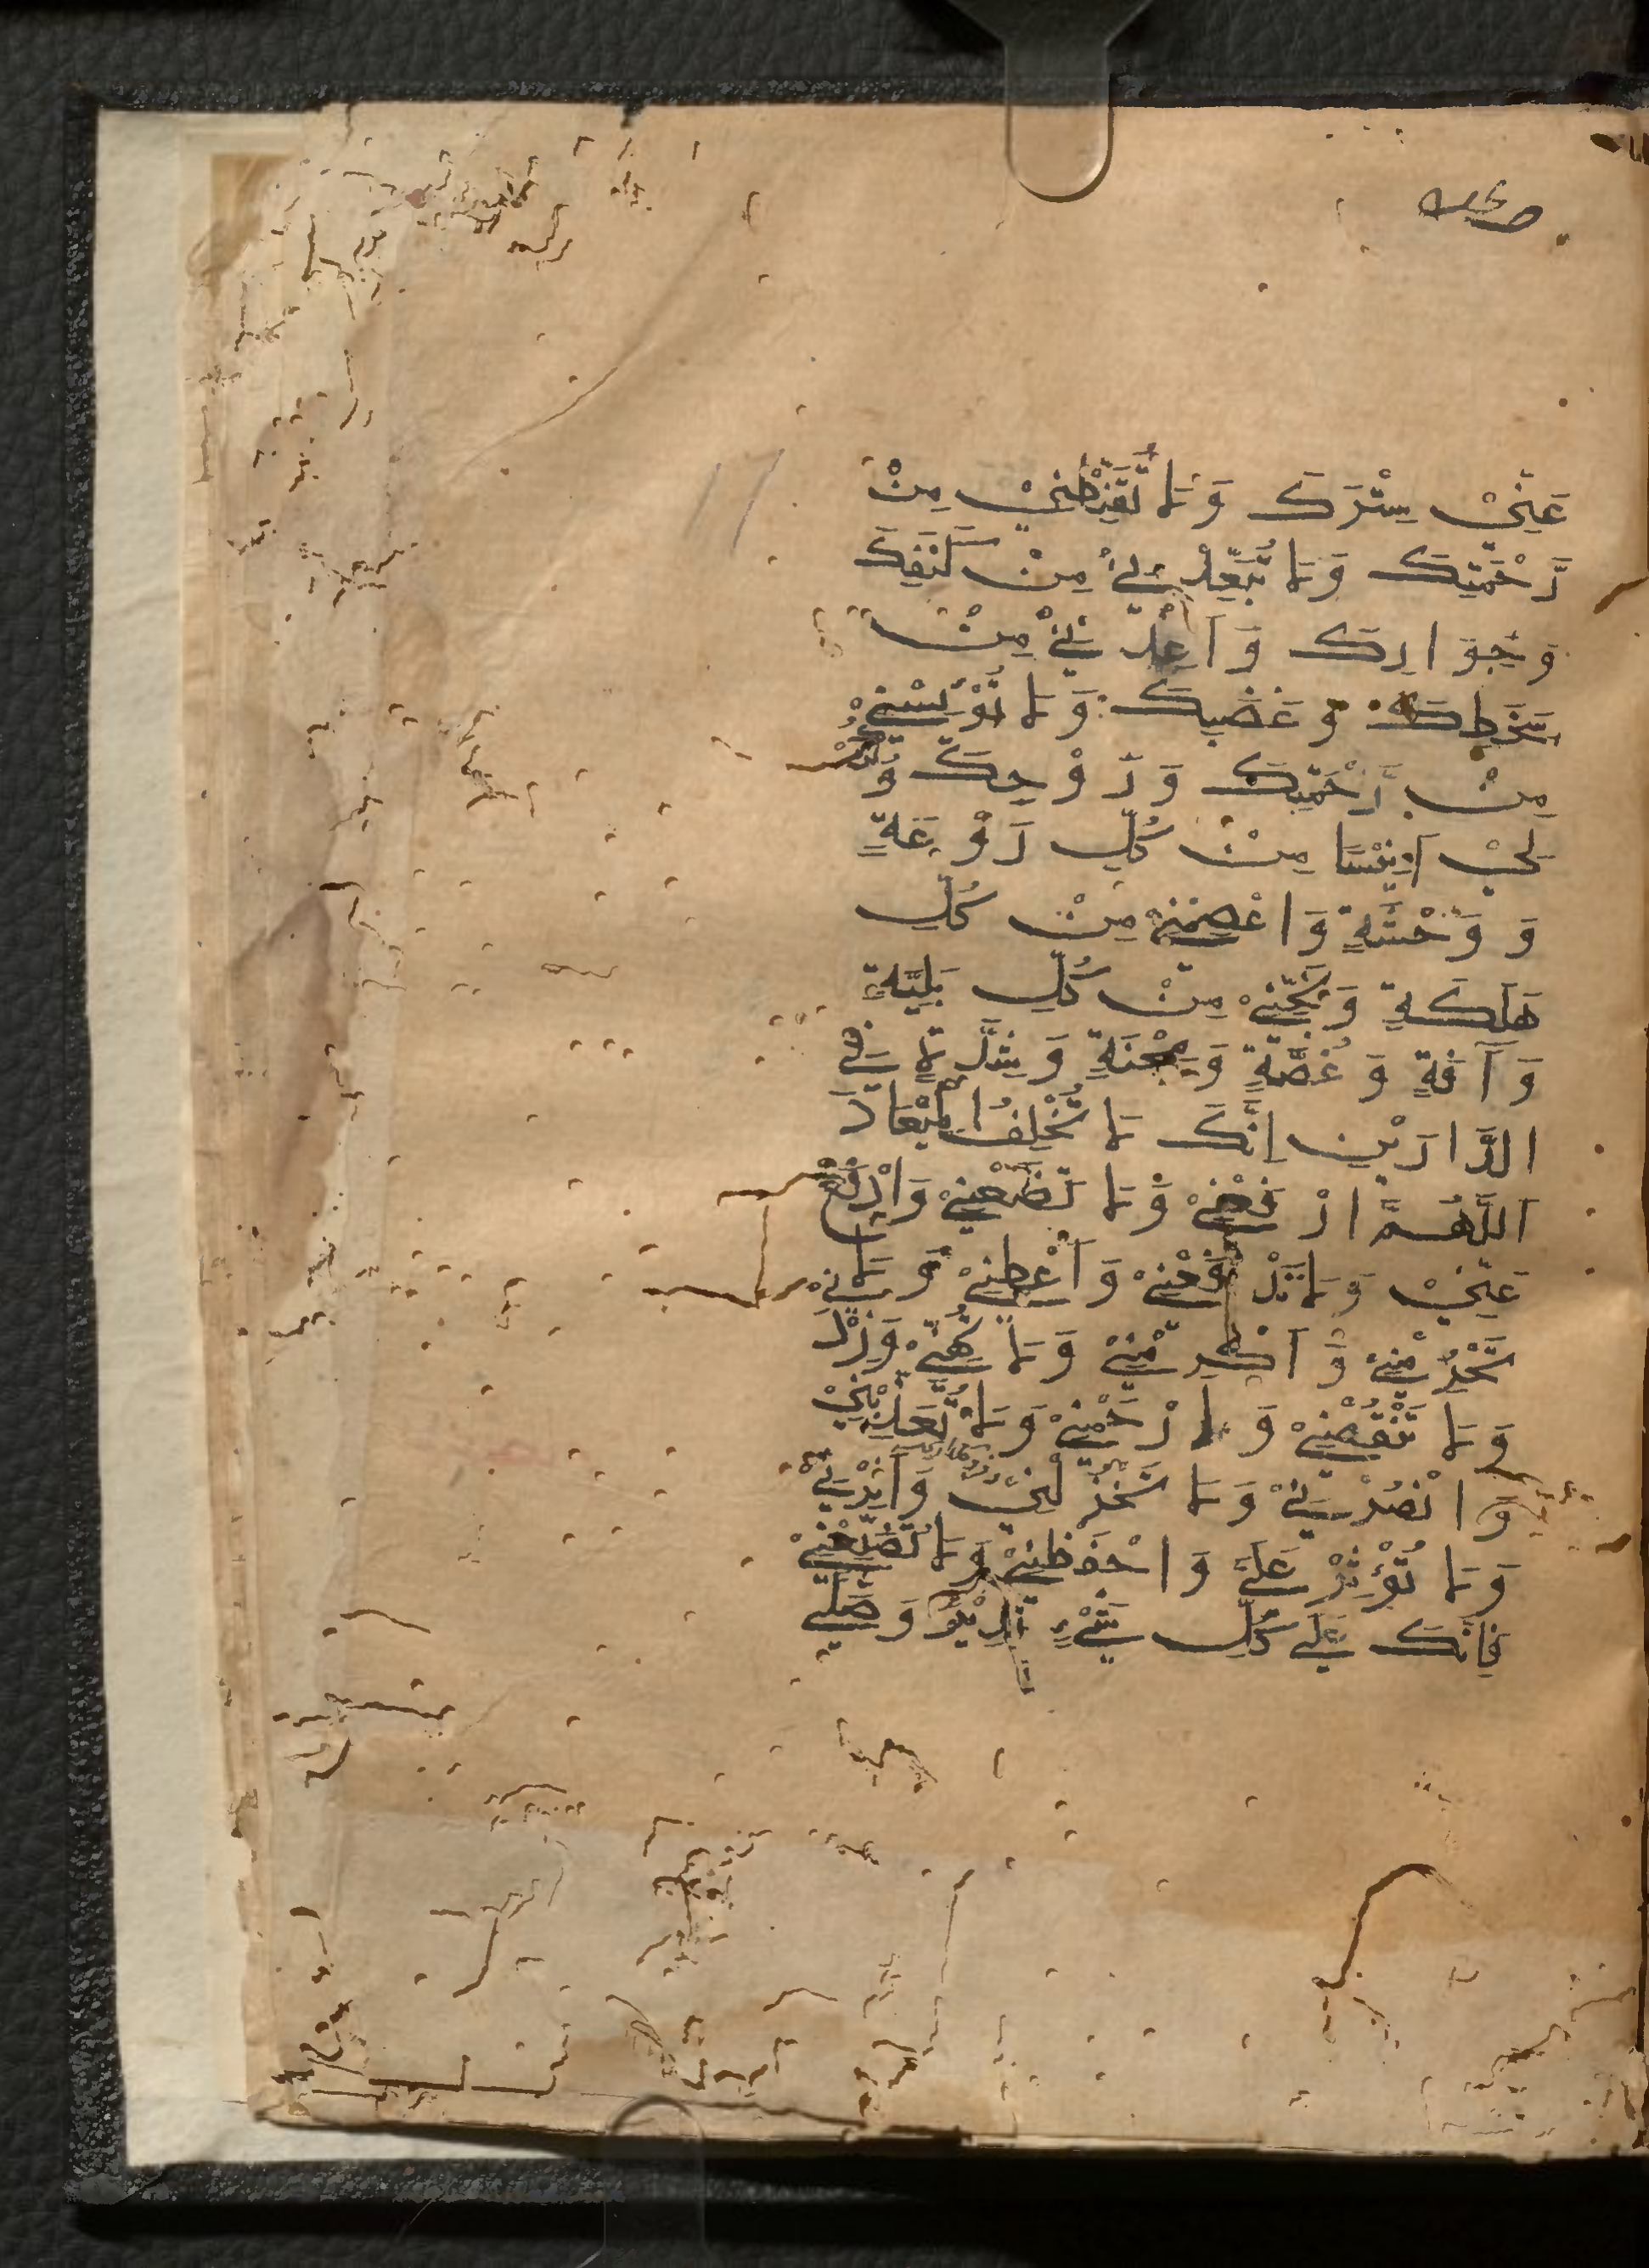 عَنِّيْ سِتْرَكَ وَلَا تُقَنِّطْنِيْ مِنْ
رَّحْمَتِكَ وَلَا تُبَعِّدْنِيْ مِنْ كَنَفِكَ
وَجِوَارِكَ وَاَعِذْنِيْ مِنْ
سَخَطِكَ وَغَضَبِكَ وَلَا تُوْيِسْنِيْ
مِنْ رَّحْمَتِكَ وَرَوْحِكَ وَكُنْ
لِيْ اَنِيْسًا مِنْ كُلِّ رَوْعَةٍ
وَوَحْشَةٍ وَاعْصِمْنِيْ مِنْ كُلِّ
هَلَكَةٍ وَنَجِّنِيْ مِنْ كُلِّ بَلِيَّةٍ
وَآفَةٍ وَغُصَّةٍ وَمِحْنَةٍ وَشِدَّةٍ فِي
الدَّارَيْنِ اِنَّكَ لَا تُخْلِفُ الْمِيْعَادَ
اَللّٰهُمَّ ارْفَعْنِيْ وَلَا تَضَعْنِيْ وَادْفَعْ
عَنِّيْ وَلَا تَدْفَعْنِيْ وَاَعْطِنِيْ وَلَا
تَحْرِمْنِيْ وَاَكْرِمْنِيْ وَلَا تُهِنِّيْ وَزِدْنِيْ
وَلَا تَنْقُصْنِيْ وَارْحَمْنِيْ وَلَا تُعَذِّبْنِيْ
وَانْصُرْنِيْ وَلَا تَخْذُلْنِيْ وَآثِرْنِيْ
وَلَا تُؤْثِرْ عَلَيَّ وَاحْفَظْنِيْ وَلَا تُضَيِّعْنِيْ
فَاِنَّكَ عَلَى كُلِّ شَيْءٍ قَدِيْرٌ وَصَلَّى